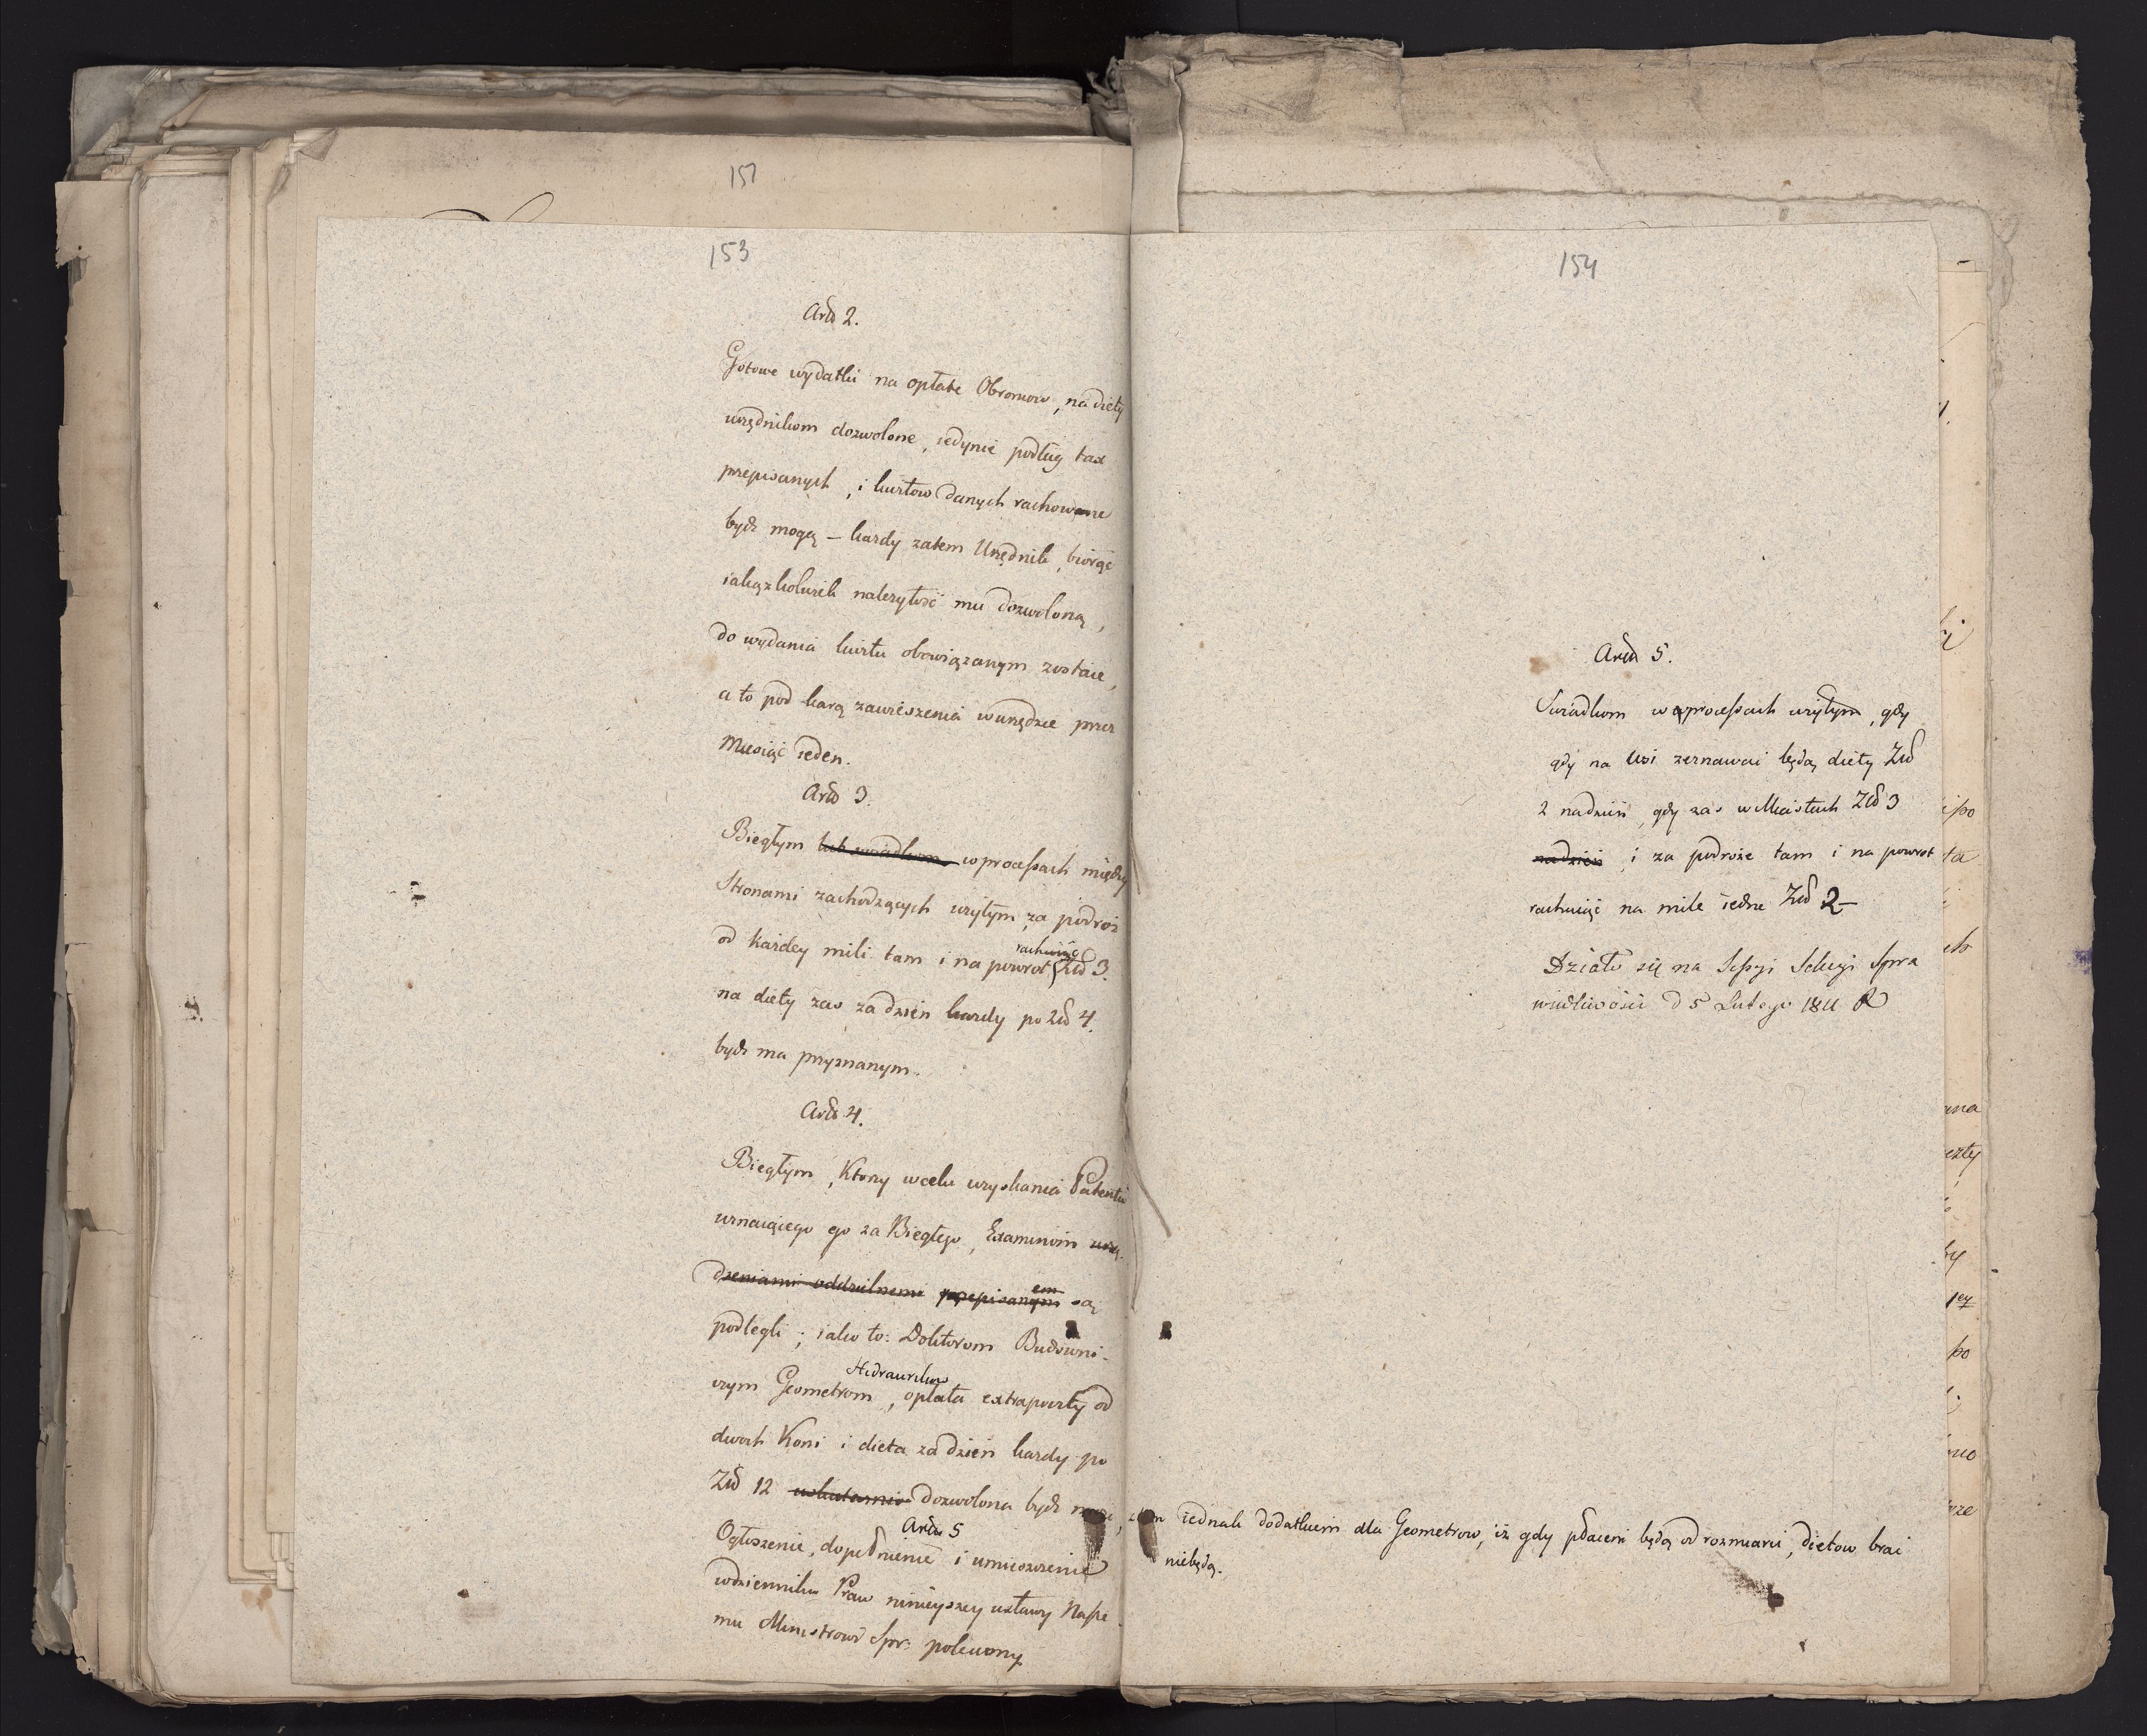 151
153
Art 2.
Gotowe wydatki na opłatę Obronców, na diety
urzędnikom dozwolone, iedynie podług tax
przepisanych, i kwitow danych rachowane
bydź mogą – każdy zatem Urzędnik, biorąc
iakążkolwiek należytość mu dozwoloną,
do wydania kwitu obowiązanym zostaie,
a to pod karą zawieszenia w urzędzie przez
Miesiąc ieden.
Art 3.
Biegłym lub swiadkom w processach między
Stronami zachodzących użytym, za podróż
od każdey mili tam i na powrot rachuiąc Złł 3.
na diety zas za dzień każdy po Złł 4.
bydź ma przyznanym.
Art 4.
Biegłym, Ktorzy w celu uzyskania Patentu
uznaiącego go za Biegłego, Examinom urzą-
dzeniami oddzielnemi przepisanym em są
podlegli; iako to: Doktorom Budowni-
czym Geometrom, Hidraulikow opłata extrapoczty od
dwoch Koni i dieta za dzień każdy po
Złł 12 dozwolona bydź może,
Art 5
Ogłoszenie, dopełnienie i umieszczenie
w dzienniku Praw ninieyszey ustawy Nasze-
mu Ministrowi Spr: polecamy
154
Art 5.
Swiadkom w processach użytym, gdy
gdy na Wsi zeznawać będą diety Złł
2 na dzień, gdy zas w Miastach Złł 3
na dzień i za podroże tam i na powrot
rachuiąc na milę iedne Złł 2–
Działo się na Sessyi Sekcyi Spra
wiedliwości d 5 Lutego 1811 R
z tem iednak dodatkiem dla Geometrow, iż gdy płaceni będą od rozmiaru, dietow brać
niebędą.